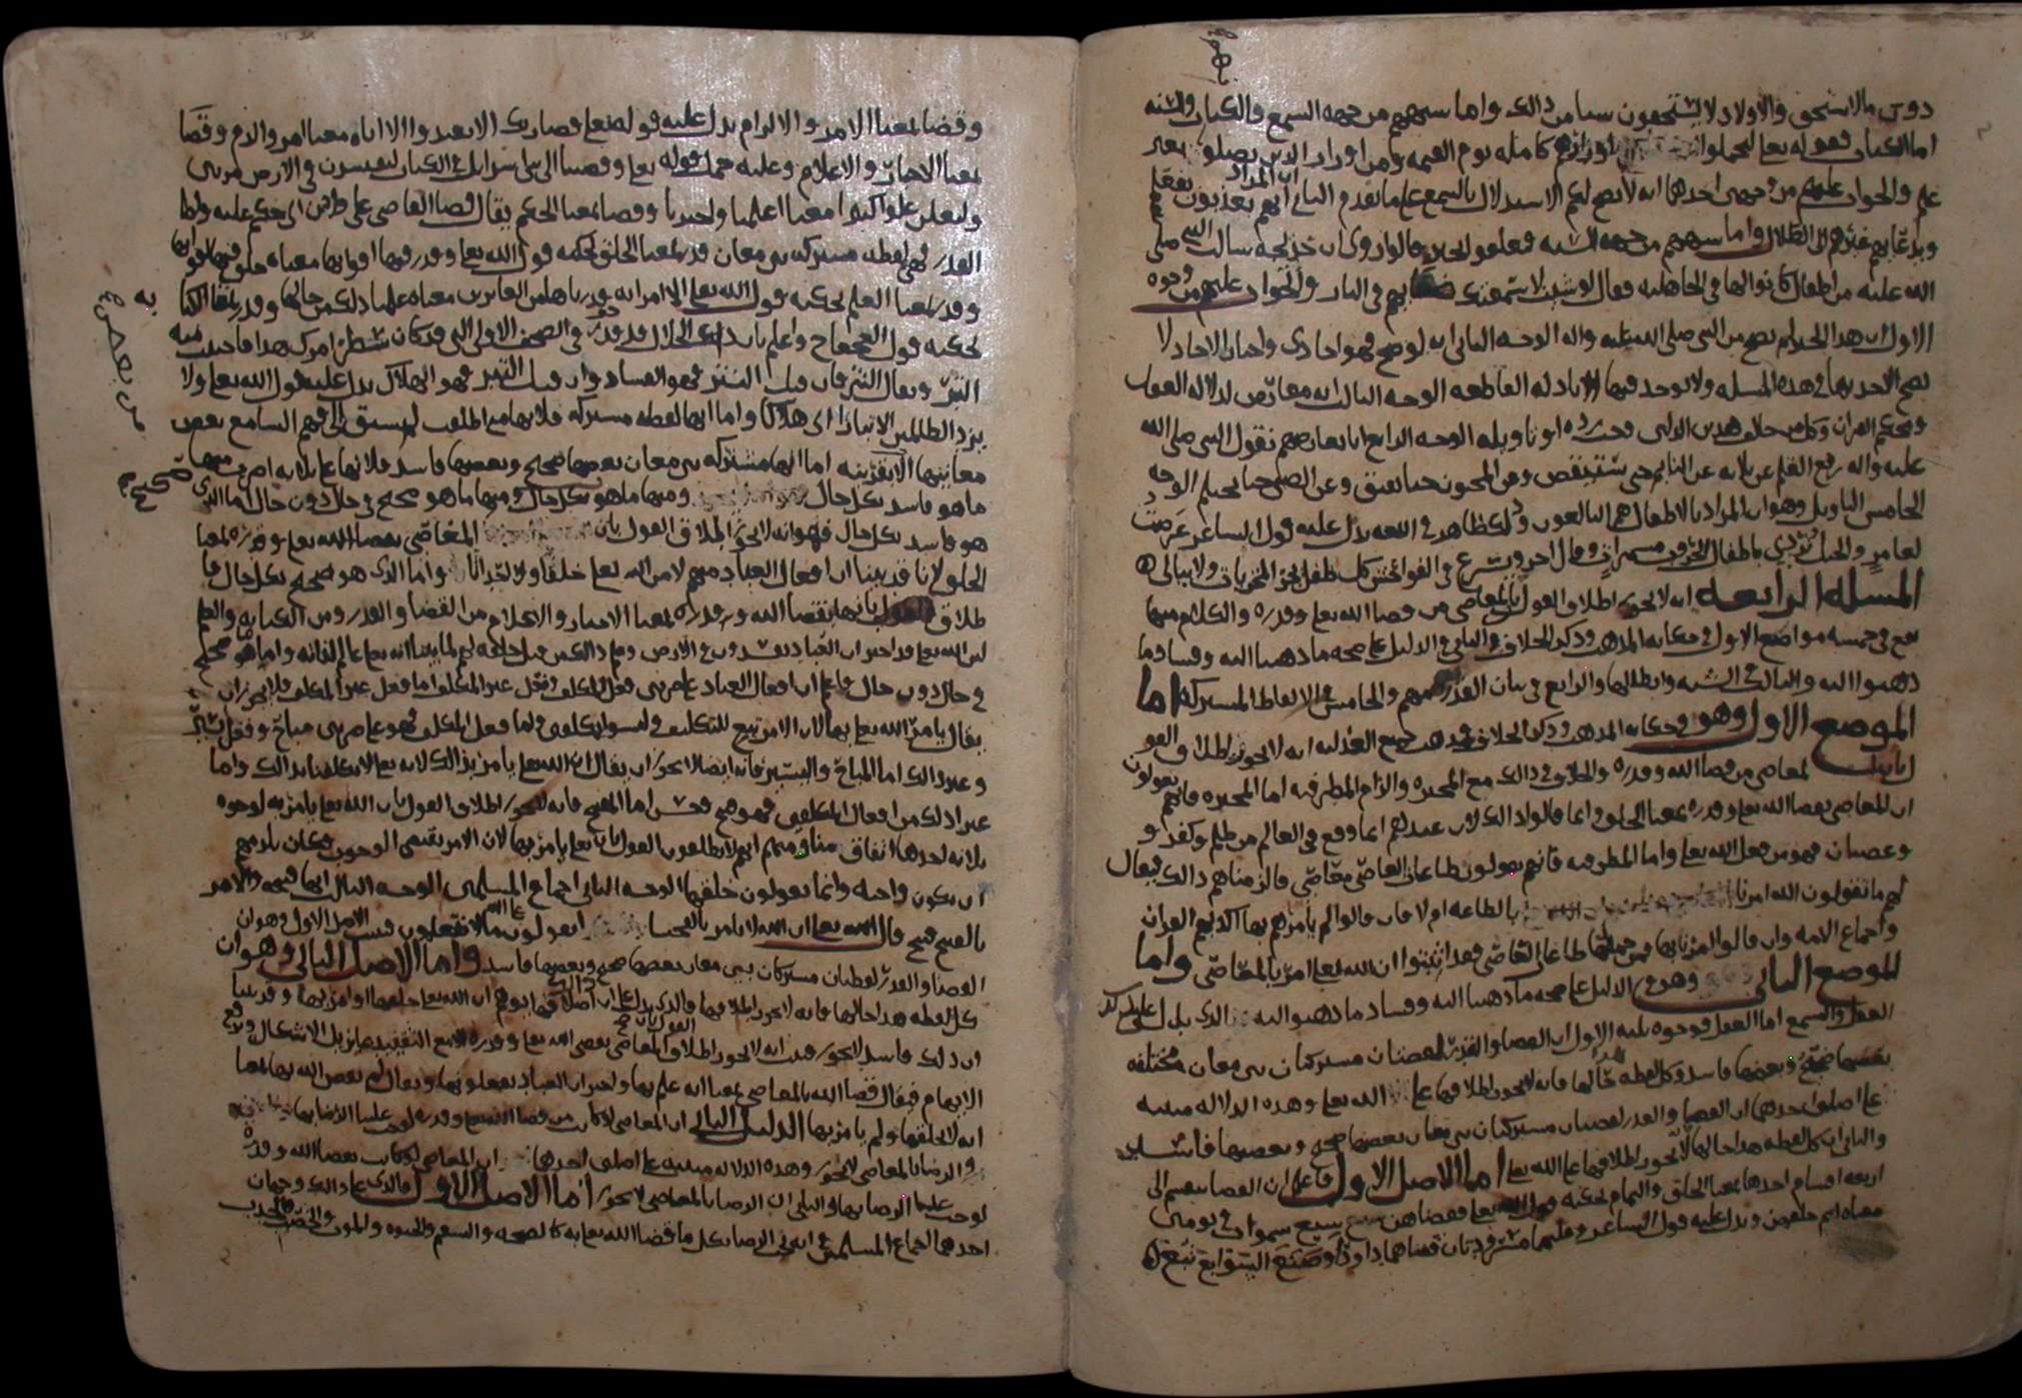 دون مالا تستحق والاولاد لا يستحقون شيا من ذالك واما شبههم من جهه السمع فالكتاب والسنه
اما الكتاب فقوله تعا ليحملوا اوزارهم كامله يوم القيمه ومن اوزار الذين يضلونهم بغير
علم والجواب عليهم من وجهين احدهما انه لا يصح لهم الاستدلال بالسمع على ما تقدم الثاني ان المراد انهم يعذبون بفعلهم
وبدعايهم غيرهم الى الضلال واما شبههم من جهه السنه فتعلقوا بخبر قالوا روي ان خديجه سالت النبي صلى
الله عليه عن اطفال كانوا لها في الجاهليه فقال لو شيت لاسمعتك ضغاهم في النار والجواب عليهم من وجوه
الاول ان هذا الخبر لم يصح عن النبي صلى الله عليه واله الوجه الثاني انه لو صح فهو احادي واخبار الاحاد لا
يصح الاخذ بها في هذه المسله ولا يوخذ فيها الا بادله القاطعه الوجه الثالث انه معارض لدلاله العقل
ومحكم القران وكل خبر خالف هذين الدليلين وجب رده او تاويله الوجه الرابع انا نعارضهم بقول النبي صلى الله
عليه واله رفع القلم عن ثلاثه عن النايم حتى يستيقض وعن المجنون حتا يفيق وعن الصبي حتا يحتلم الوجه
الخامس التاويل وهو ان المراد بالاطفال هم البالغون وذلك ظاهر في اللغه يدل عليه قول الشاعر عرضت
لعامر والخيل تردي باطفال الحروب مشمرات وقال اخر وتسرع في الفواحش كل طفل يجر المخزيات ولا يبالي
المسله الرابعه انه لا يجوز اطلاق القول بان المعاصي من قضا الله تعا وقدره والكلام منها
يقع في خمسه مواضع الاول في حكايه المذهب وذكر الخلاف والثاني في الدليل على صحه ما ذهبنا اليه وفساد ما
ذهبوا اليه والثالث في الشبه وابطالها والرابع في بيان القدريه منهم والخامس في الالفاظ المشتركه اما
الموضع الاول وهو في حكايه المذهب وذكر الخلاف فمذهب جميع العدليه انه لا يجوز اطلاق القو
ل بان المعاصي من قضا الله وقدره والخلاف في ذالك مع المجبره والزام المطرفيه اما المجبره فانهم يقولون
ان المعاصي بقضا الله تعا وقدره بمعنا الخلق وانما قالوا ذالك لان عندهم انما وقع في العالم من ظلم وكفر و
وعصيان فهو من فعل الله تعا واما المطرفيه فانهم يقولون طاعات العاصي معاصي فالزمناهم ذالك فيقال
لهم ما تقولون الله امرنا بالطاعه ام لا فان قالوا لم يامرهم بها اكذبهم القران
واجماع الامه وان قالوا امرنا بها فمن جملتها طاعات العاصي فقد اثبتوا ان الله تعا امر بالمعاصي واما
الموضع الثاني وهو في الدليل على صحه ما ذهبنا اليه وفساد ما ذهبوا اليه فالذي يدل على ذلك
العقل والسمع اما العقل فوجوه ثلثه الاول ان القضا والقدر لفضتان مشتركتان بين معان مختلفه
بعضها صحيح وبعضها فاسد وكل لفظه هذا حالها فانه لا يجوز اطلاقها على الله تعا وهذه الدلاله مبنيه
على اصلين احدهما ان القضا والقدر لفضتان مشتركتان بين معان بعضها صحيح وبعضها فاسد
والثاني ان كل لفظه هذا حالها لا يجوز اطلاقها على الله تعا اما الاصل الاول فاعلم ان القضا ينقسم الى
اربعه اقسام احدها بمعنا الخلق والتمام يحكيه قول الله تعا فقضاهن سبع سموات في يومين
معناه اتم خلقهن ويدل عليه قول الشاعر وعليهما مسرودتان قضاهما داود او صنع السوابغ تبع
وقضا بمعنا الامر والالزام يدل عليه قوله تعا وقضا ربك الا تعبدوا الا اياه معنا امر والزم وقضا
بمعنا الاخبار والاعلام وعليه حمل قوله تعا وقضينا الى بني اسرايل في الكتاب لتفسدن في الارض مرتين
ولتعلن علوا كبيرا معنا اعلمنا واخبرنا وقضا بمعنا الحكم يقال قضا القاضي على فلان اي حكم عليه واما
القدر فهي لفظه مشتركه بين معان قدر بمعنا الخلق يحكيه قول الله تعا وقدر فيها اقواتها معناه خلق فيها اقواتها
وقدر بمعنا العلم يحكيه قول الله تعا الا امراته قدرناها من الغابرين معناه علمنا ذلك من حالها وقدر بمعنا الكتا
به
يحكيه قول العجاج واعلم بان ذا الجلال قد قدر في الصحف الاولى التي قد كان سطر امرك هذا فاجتنب منه
التبر ويقال النتر فان قيل النتر فهو الفساد وان قيل التبر فهو الهلاك يدل عليه قول الله تعا ولا
يزد الظالمين الا تبارا اي هلاكا واما انها لفظه مشتركه فلانها متى اطلقت لم يسبق الى فهم السامع بعض
معانيها الا بقرينه اما انها مشتركه بين معان بعضها صحيح وبعضها فاسد فلانها على ثلاثه اضرب منها
ما هو فاسد بكل حال ومنها ما هو بكل حال ومنها ما هو صحيح في حال دون حال اما الذي
هو فاسد بكل حال فهو انه لا يجوز اطلاق القول بان المعاصي بقضا الله تعا وقدره بمعنا
الخلق لانا قد بينا ان افعال العباد منهم لا من الله تعا خلقا ولا احداثا واما الذي هو صحيح بكل حال فا
طلاق القول بانها بقضا الله وقدره بمعنا الاخبار والاعلام من القضا والقدر ومن الكتابه والعلم
لان الله تعا قد اخبر ان العباد يفسدون في الارض وعلم ذالك من قبل خلقه لهم لما بينا انه تعا عالم لذاته واما ما هو صحيح
في حال دون حال فاعلم ان افعال العباد على ضربين فعل المكلف وفعل غير المكلف اما فعل غير المكلف فلا يجوز ان
يقال يامر الله تعا بها لان الامر تبع للتكليف وليسوا مكلفين واما فعل المكلف فهو على ضربين مباح
وغير ذالك اما المباح فانه ايضا لا يجوز ان يقال ان الله تعا يامر بذالك لانه تعا لا يكلفنا بذالك واما
غير ذلك من افعال المكلفين فهو قبيح وحسن اما القبيح فانه لا يجوز اطلاق القول بان الله تعا يامر به لوجوه
ثلاثه احدها اتفاق منا ومنهم انهم لا يطلقون القول بانه تعا يامر بها لان الامر يقتضي الوجوب فكان يلزمهم
ان يكون واجبه وانما يقولون خلقها الوجه الثاني اجماع المسلمين الوجه الثالث انها قبيحه والامر
بالقبيح قبيح قال الله تعا ان الله لا يامر بالفحشا اتقولون على الله ما لا تعلمون فثبت الاصل الاول وهو ان
القضا والقدر لفظتان مشتركتان بين معان بعضها صحيح وبعضها فاسد واما الاصل الثاني وهو ان
كل لفظه هذا حالها فانه لا يجوز اطلاقها فالذي يدل على ذالك ان اطلاقها يوهم ان الله تعا خلقها او امر بها وقد بينا
ان ذلك فاسد لا يجوز فثبت انه لا يجوز اطلاق القول بان المعاصي بقضى الله تعا وقدره الا مع التقييد بما يزيل الاشكال ويرفع
الابهام فيقال قضا الله بالمعاصي بمعنا انه علم بها واخبر ان العباد يفعلونها ويقال لم يقض الله بها بمعنا
انه لم يخلقها ولم يامر بها الدليل الثاني ان المعاصي لو كانت من قضا الله تعا وقدره لوجب علينا الرضا بها
والرضا بالمعاصي لا يجوز وهذه الدلاله مبنيه على اصلين احدهما ان المعاصي لو كانت بقضا الله وقدره
لوجب علينا الرضا بها والثاني ان الرضا بالمعاصي لا يجوز اما الاصل الاول فالذي يدل على ذالك وجهان
احدهما اجماع المسلمين على انه يجب الرضا بكل ما قضا الله تعا به كالصحه والسقم والحيوه والموت والخصب والجدب